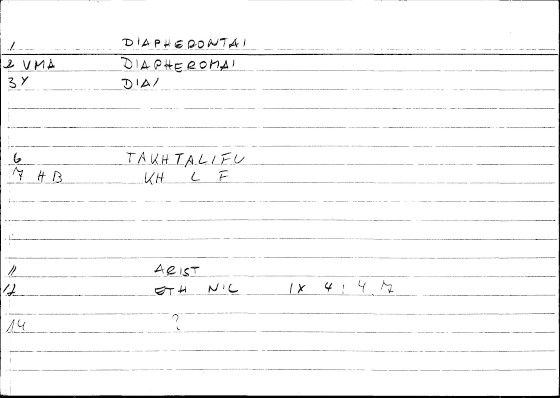 1 DIAPHERONTAI
2 VMA DIAPHEROMAI
3 Y DIA/
6 TAKHTALIFU
7 HB KH L F
11 ARIST
12 ETH NIC IX 4 : 4.7
14 ?